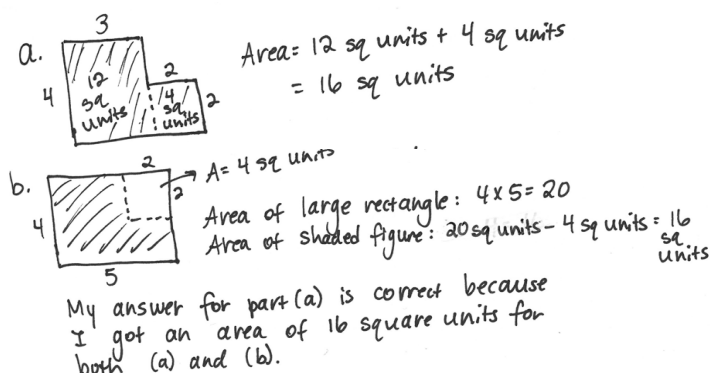 a.
3
4
12 sq units
2
4 sq units
2
Area = 12 sq units + 4 sq units
= 16 sq units
b.
2
2
A = 4 sq units
4
5
Area of large rectangle: 4 x 5 = 20
Area of shaded figure: 20 sq units - 4 sq units = 16 sq units
My answer for part (a) is correct because
I got an area of 16 square units for
both (a) and (b).